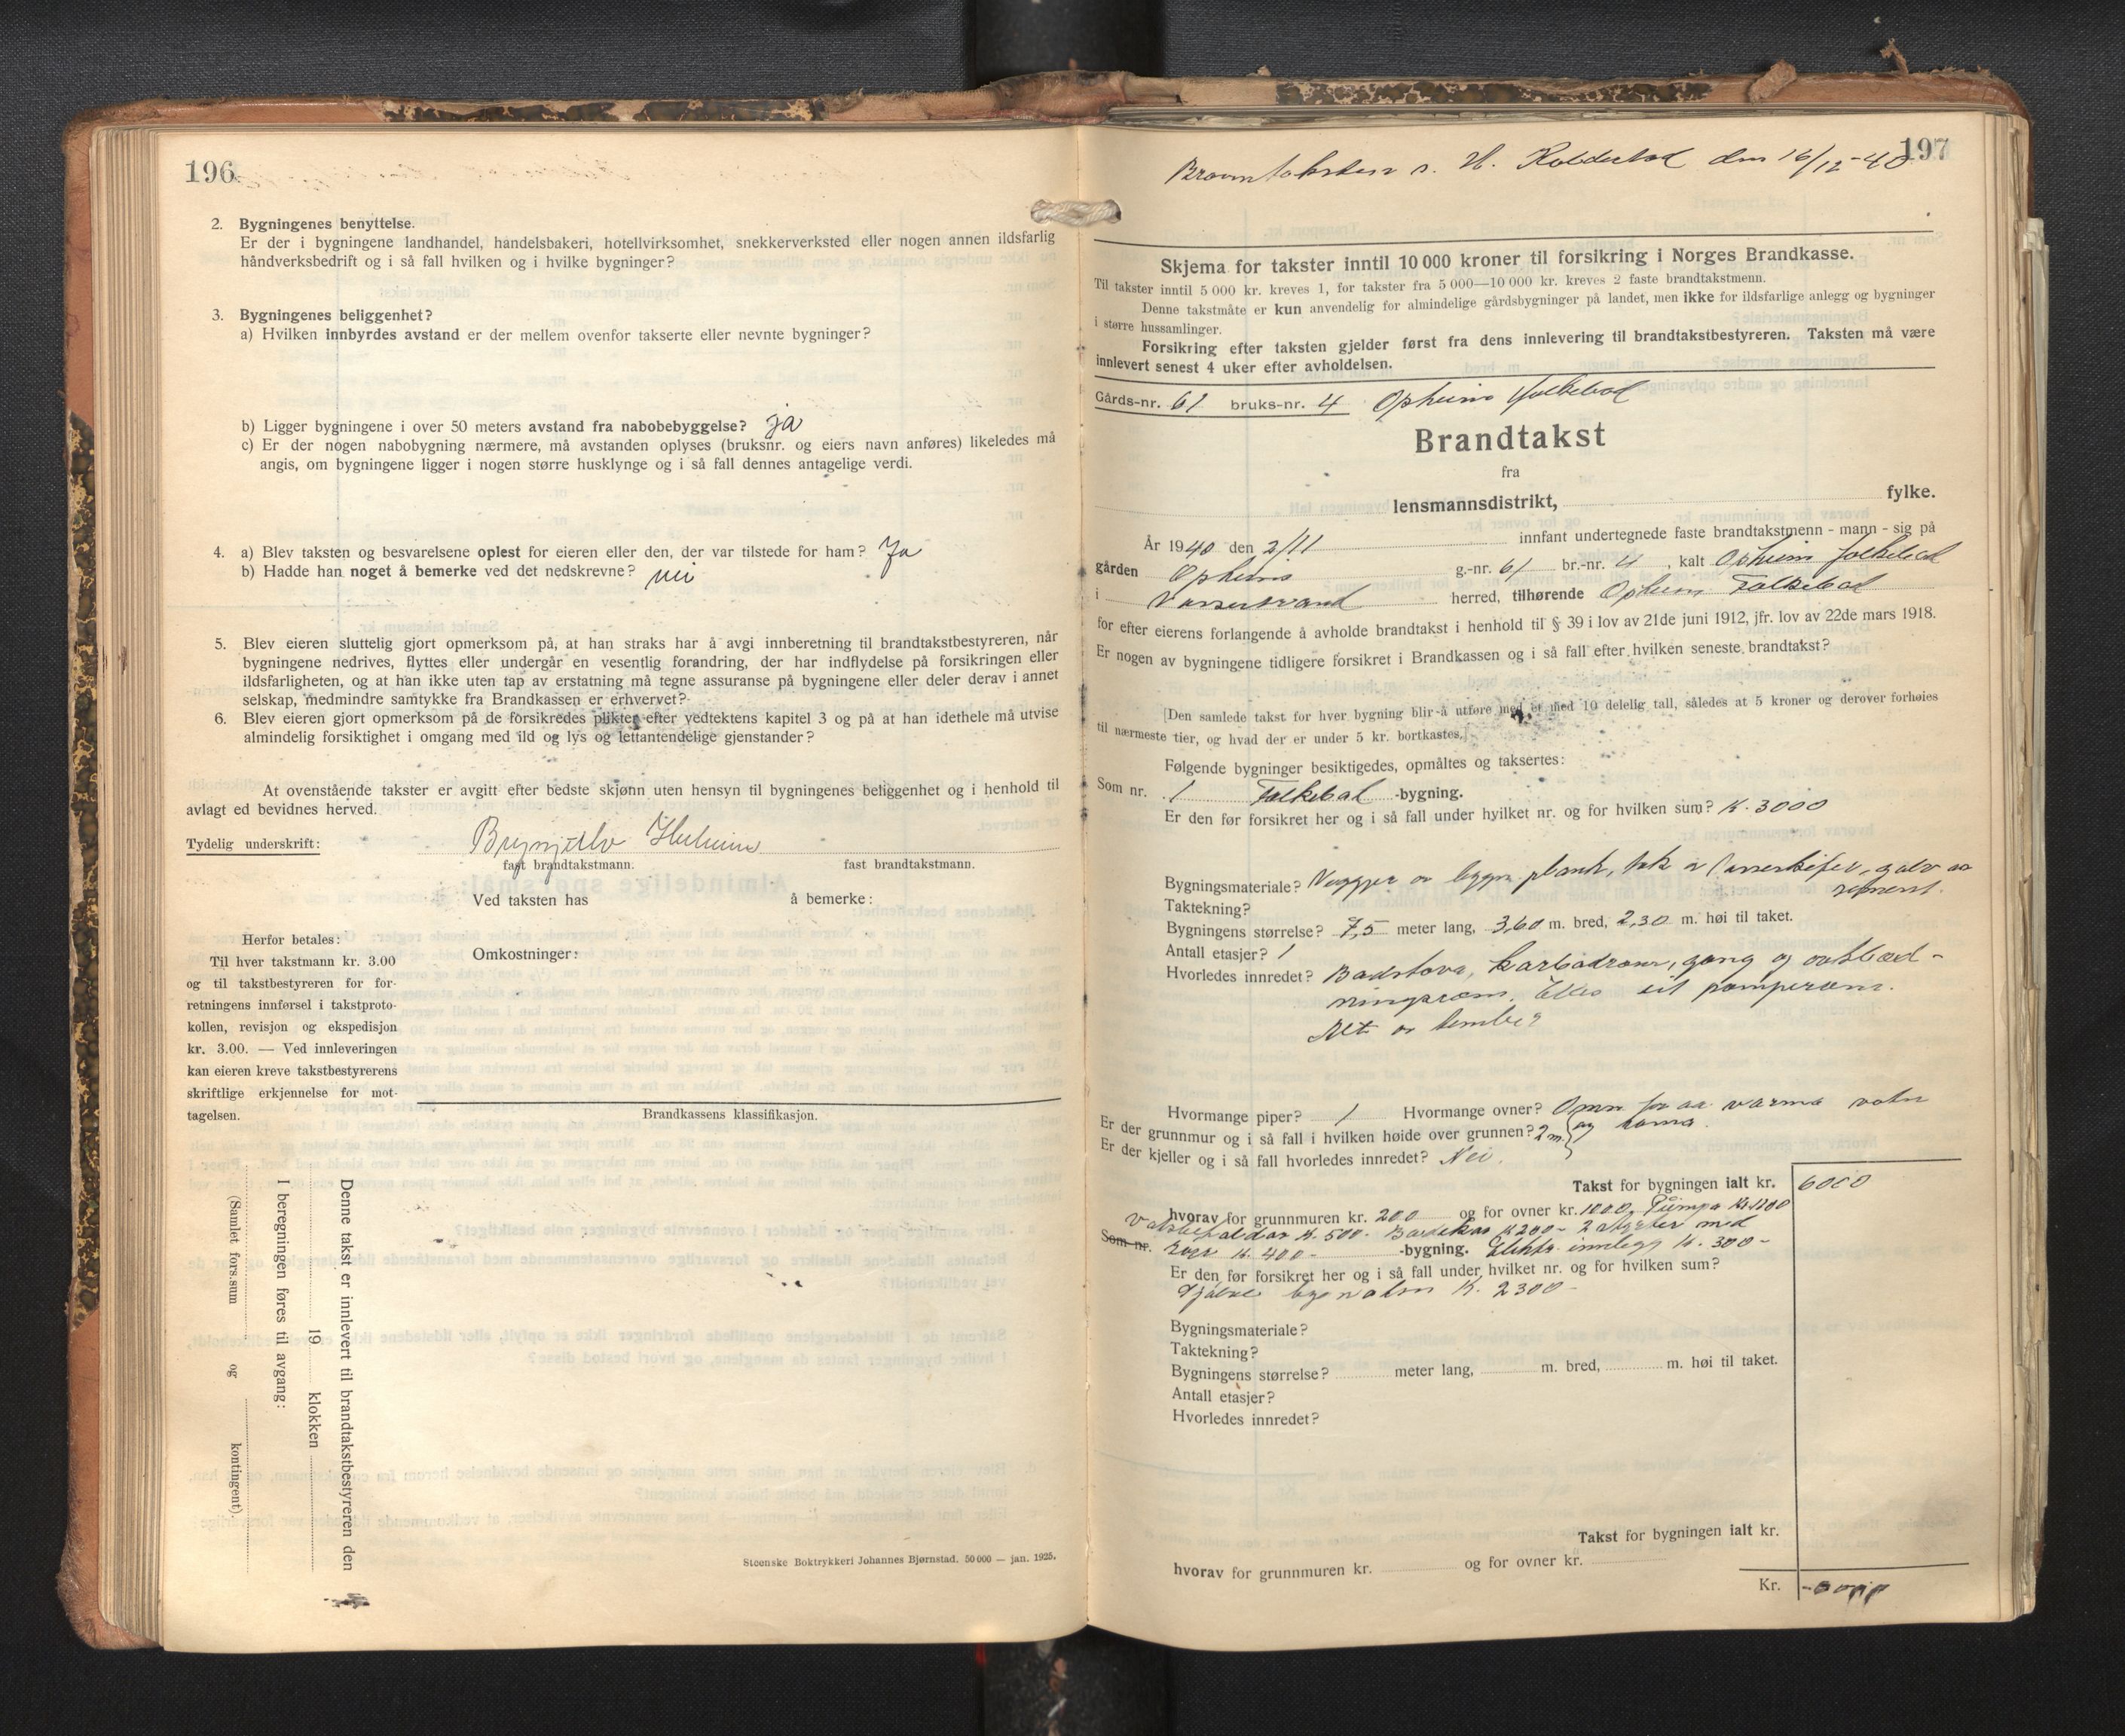 196
2. Bygningenes benyttelse.
Er der i bygningene landhandel, handelsbakeri, hotellvirksomhet, snekkerverksted eller nogen annen ildsfarlig
håndverksbedrift og i så fall hvilken og i hvilke bygninger?
3. Bygningenes beliggenhet?
a) Hvilken innbyrdes avstand er der mellem ovenfor takserte eller nevnte bygninger?
b) Ligger bygningene i over 50 meters avstand fra nabobebyggelse? ja
c) Er der nogen nabobygning nærmere, må avstanden oplyses (bruksnr. og eiers navn anføres) likeledes må
angis, om bygningene ligger i nogen større husklynge og i så fall dennes antagelige verdi.
4. a) Blev taksten og besvarelsene oplest for eieren eller den, der var tilstede for ham? Ja
b) Hadde han noget å bemerke ved det nedskrevne? nei
5. Blev eieren sluttelig gjort opmerksom på, at han straks har å avgi innberetning til brandtakstbestyreren, når
bygningene nedrives, flyttes eller undergår en vesentlig forandring, der har indflydelse på forsikringen eller
ildsfarligheten, og at han ikke uten tap av erstatning må tegne assuranse på bygningene eller deler derav i annet
selskap, medmindre samtykke fra Brandkassen er erhvervet?
6. Blev eieren gjort opmerksom på de forsikredes plikter efter vedtektens kapitel 3 og på at han idethele må utvise
almindelig forsiktighet i omgang med ild og lys og lettantendelige gjenstander?
At ovenstående takster er avgitt efter bedste skjønn uten hensyn til bygningenes beliggenhet og i henhold til
avlagt ed bevidnes herved.
Tydelig underskrift:
fast brandtakstmann. fast brandtakstmann.
Ved taksten has å bemerke:
Herfor betales:
Til hver takstmann kr. 3.00
og til takstbestyreren for for-
retningens innførsel i takstproto-
kollen, revisjon og ekspedisjon
kr. 3.00. — Ved innleveringen
kan eieren kreve takstbestyrerens
skriftlige erkjennelse for mot-
tagelsen.
Omkostninger:
Brandkassens klassifikasjon.
Denne takst er innlevert til brandtakstbestyreren den
19 klokken
I beregningen føres til avgang:
(Samlet fors.sum og kontingent).
Steenske Boktrykkeri Johannes Bjørnstad. 50 000 — jan. 1925.
197
den 16/12-40
Skjema for takster inntil 10 000 kroner til forsikring i Norges Brandkasse.
Til takster inntil 5 000 kr. kreves 1, for takster fra 5 000—10 000 kr. kreves 2 faste brandtakstmenn.
Denne takstmåte er kun anvendelig for almindelige gårdsbygninger på landet, men ikke for ildsfarlige anlegg og bygninger
i større hussamlinger.
Forsikring efter taksten gjelder først fra dens innlevering til brandtakstbestyreren. Taksten må være
innlevert senest 4 uker efter avholdelsen.
Gårds-nr. 61 bruks-nr. 4 Opheim folkebad
Brandtakst
fra
lensmannsdistrikt, fylke.
År 1940 den 2/11 innfant undertegnede faste brandtakstmenn - mann - sig på
gården Opheim g.-nr. 61 br.-nr. 4, kalt Opheim folkebad
i Vossestrand herred, tilhørende Opheim Folkebad
for efter eierens forlangende å avholde brandtakst i henhold til § 39 i lov av 21de juni 1912, jfr. lov av 22de mars 1918.
Er nogen av bygningene tidligere forsikret i Brandkassen og i så fall efter hvilken seneste brandtakst?
[Den samlede takst for hver bygning blir å utføre med et med 10 delelig tall, således at 5 kroner og derover forhøies
til nærmeste tier, og hvad der er under 5 kr. bortkastes.]
Følgende bygninger besiktigedes, opmåltes og taksertes:
Som nr. 1 Folkebad -bygning.
Er den før forsikret her og i så fall under hvilket nr. og for hvilken sum? K. 3000
Bygningsmateriale? Vegger av plank, tak
Taktekning?
Bygningens størrelse? 7,5 meter lang, 3,60 m. bred, 2,30 m. høi til taket.
Antall etasjer? 1
Hvorledes innredet? Badstova, karbadrom, gang og avklæd-
ningsrom. Elles eit pomperom.
Alt av tember
Hvormange piper? 1 Hvormange ovner? Omn for aa varma vatn
Er der grunnmur og i så fall i hvilken høide over grunnen? 2 m. og
Er der kjeller og i så fall hvorledes innredet? Nei.
Takst for bygningen ialt kr. 6000
hvorav for grunnmuren kr. 200 og for ovner kr. 1000 Pumpa Kr 1200
K. 500- Badekar K 200- 2
Som nr. K. 400- -bygning. Elektr. innlegg K. 300-
Er den før forsikret her og i så fall under hvilket nr. og for hvilken sum?
K. 2300-
Bygningsmateriale?
Taktekning?
Bygningens størrelse? meter lang, m. bred, m. høi til taket.
Antall etasjer?
Hvorledes innredet?
Takst for bygningen ialt kr.
hvorav for grunnmuren kr. og for ovner kr.
Kr.